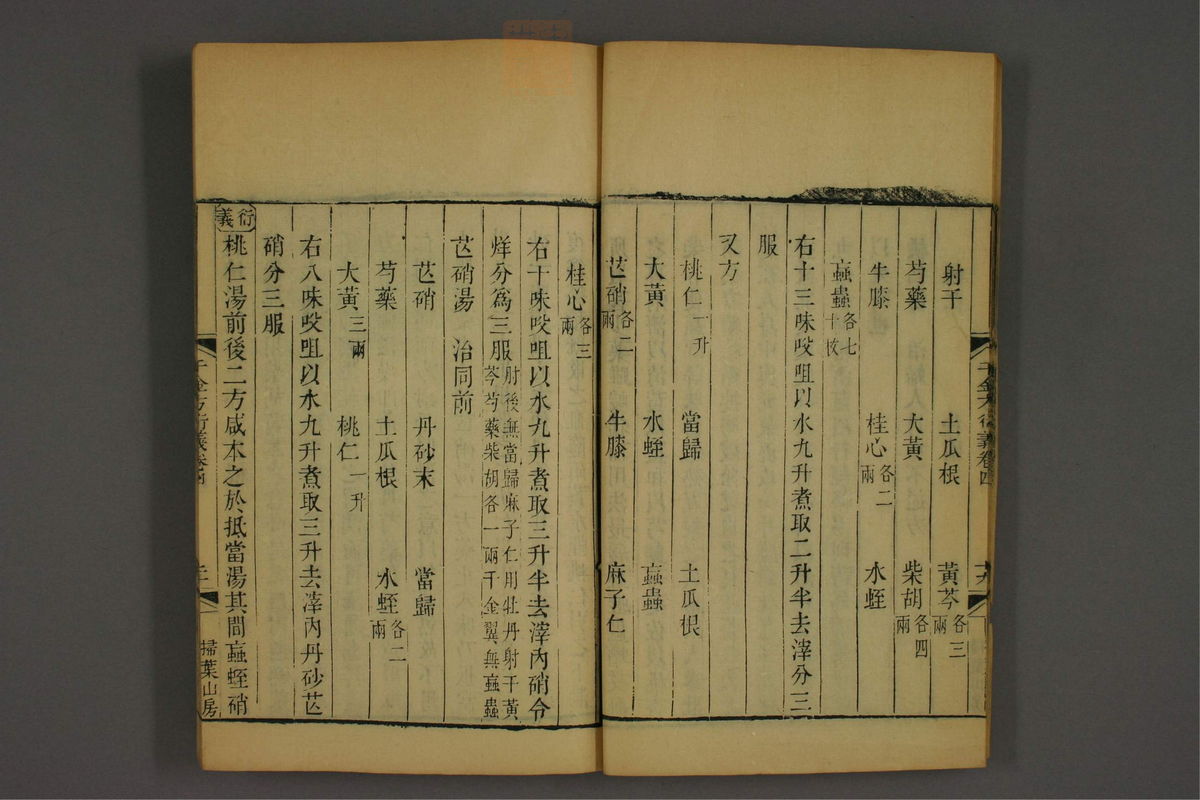 射干　土瓜根　黃芩各三兩
芍藥　大黃　柴胡各四兩
牛膝　桂心各二兩　水蛭
蝱蟲各七十枚
右十三味㕮咀以水九升煮取二升半去滓分三
服
又方
桃仁一升　當歸　土瓜根
大黃　水蛭　蝱蟲
芒硝各二兩　牛膝　麻子仁
桂心各三兩
右十味㕮咀以水九升煮取三升半去滓內硝令
烊分爲三服肘後無當歸麻子仁用牡丹射干黃芩芍藥柴胡各一兩千金翼無蝱蟲
芒硝湯　治同前
芒硝　丹砂末　當歸
芍藥　土瓜根　水蛭各二兩
大黃三兩　桃仁一升
右八味㕮咀以水九升煮取三升去滓內丹砂芒
硝分三服
衍義
桃仁湯前後二方咸本之於抵當湯其間蝱蛭硝
千金方衍義卷四
掃葉山房